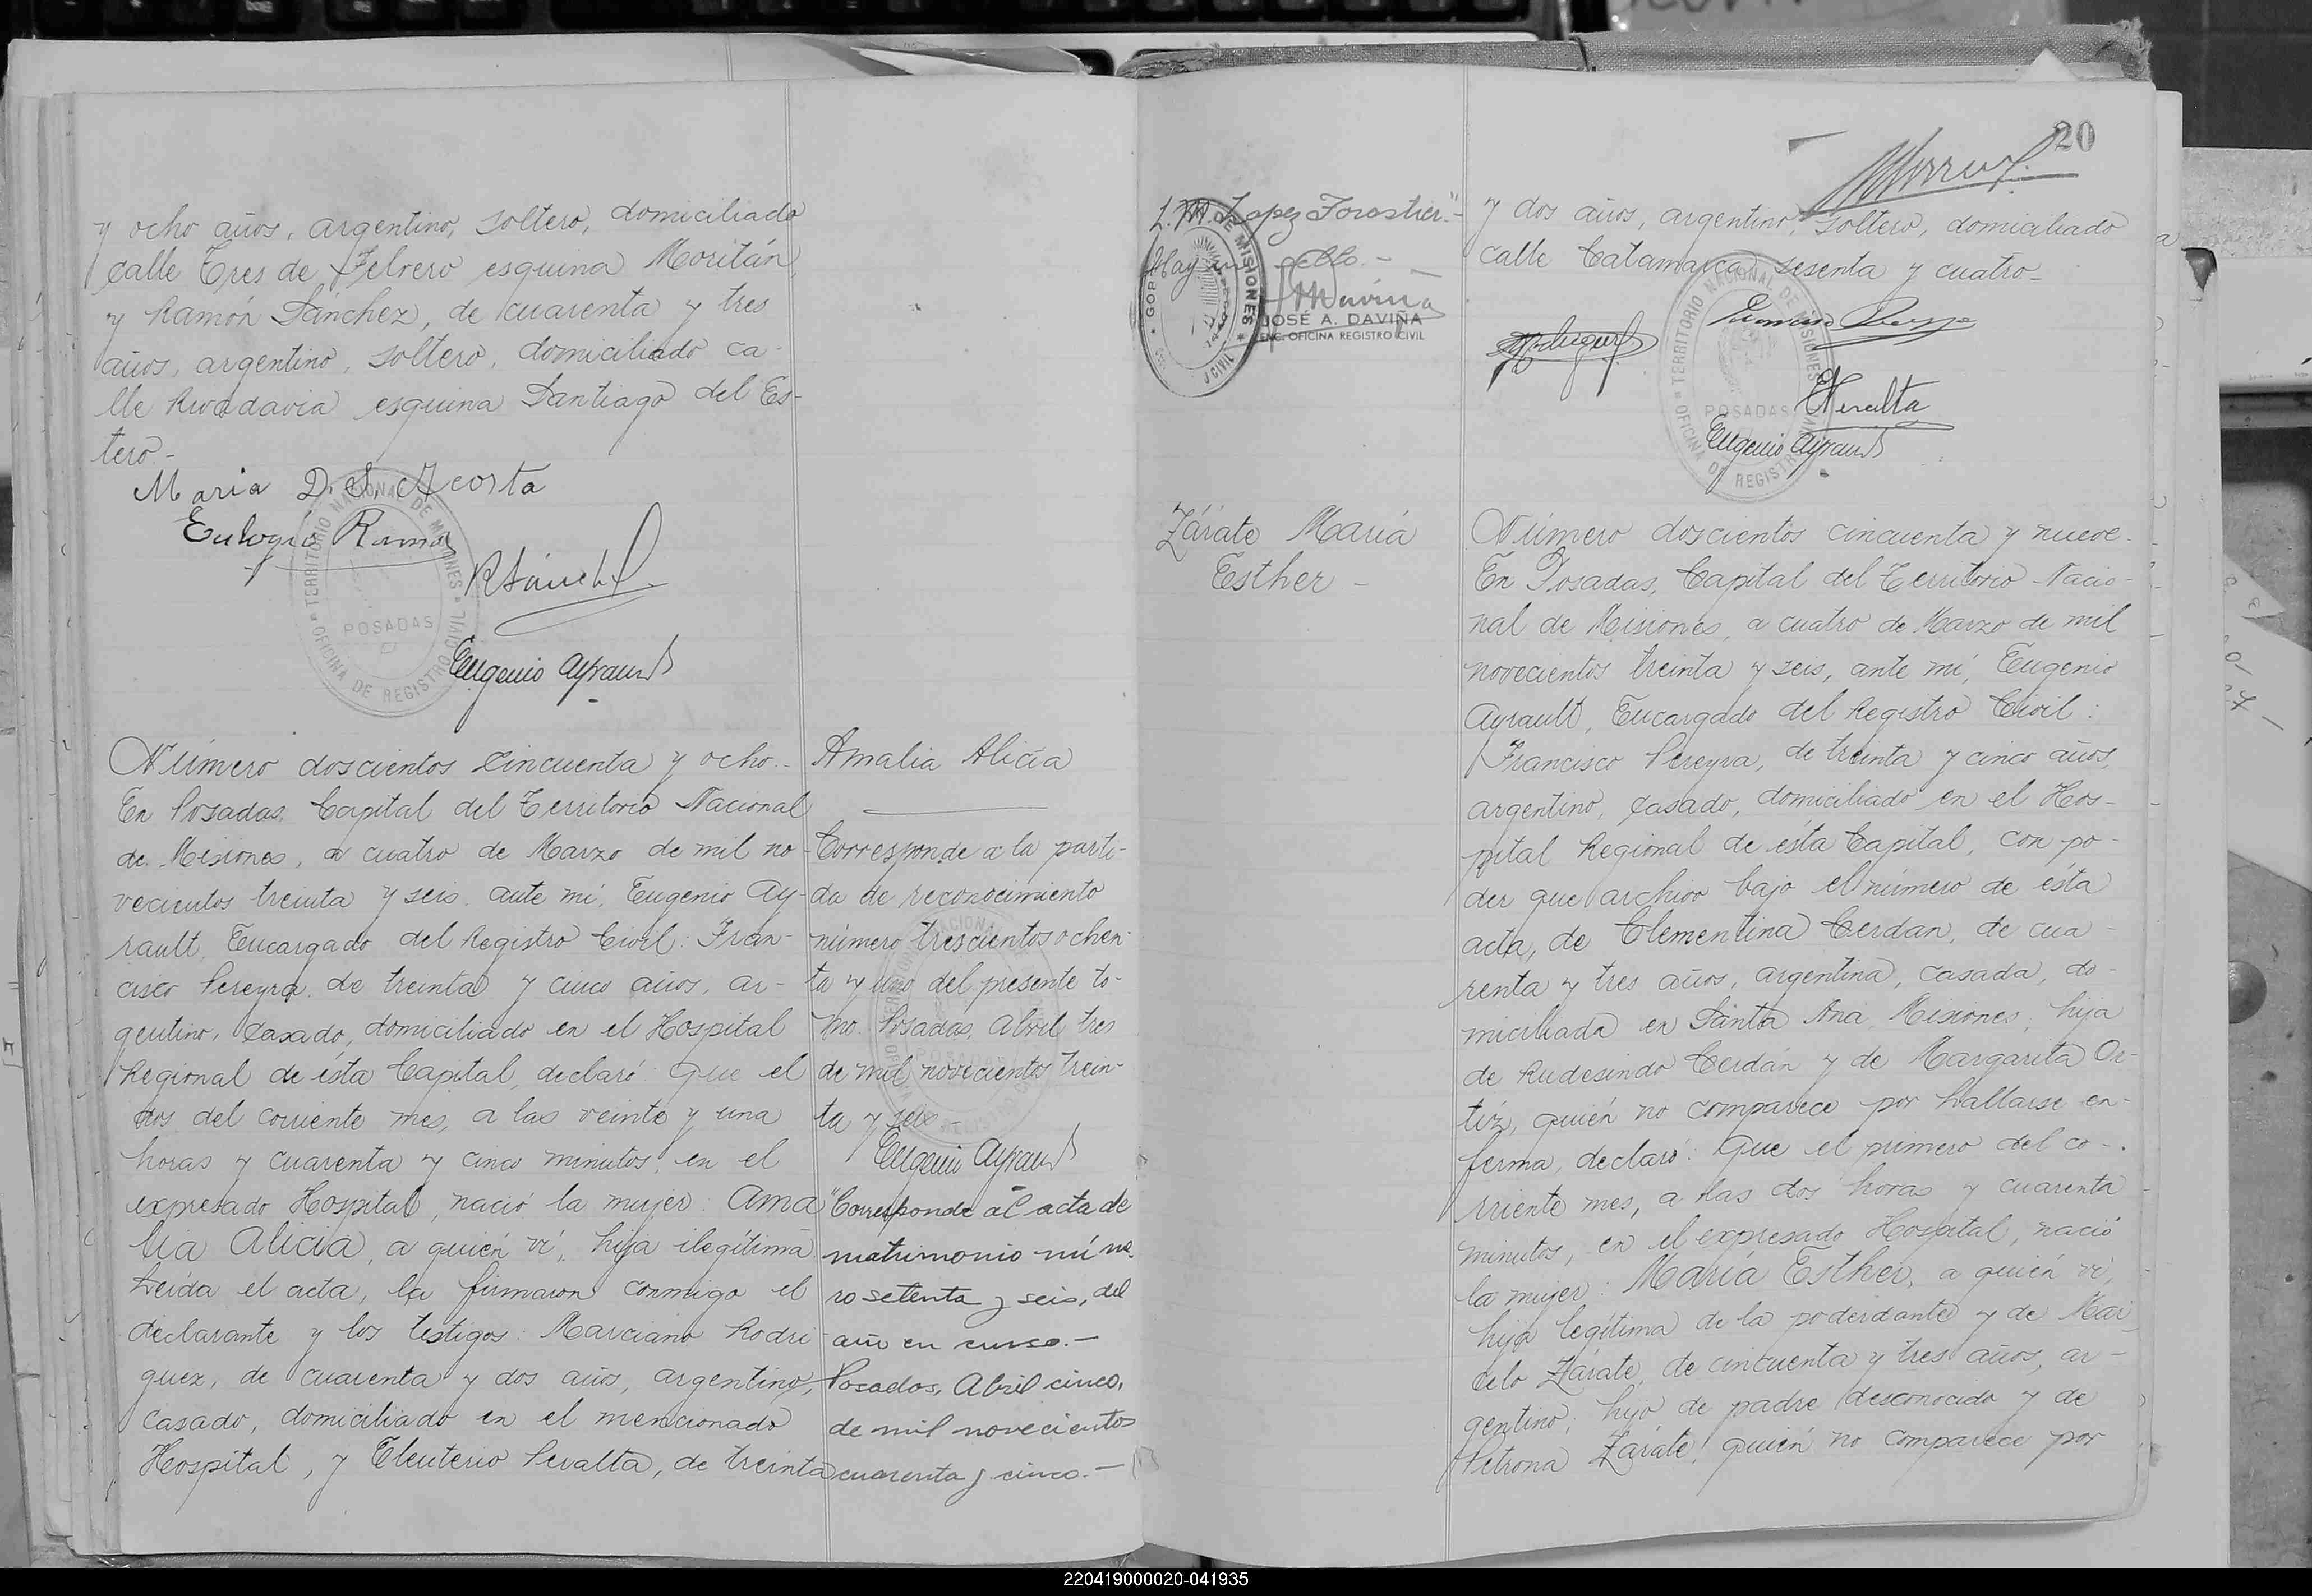 y ocho años, argentino, soltero, domiciliado
calle Tres de Febrero esquina Moritán,
y Ramón Sánchez, de cuarenta y tres
años, argentino, soltero, domiciliado ca-
lle Rivadavia esquina Santiago del Es-
tero-
Maria D. S. Acosta
Eulogio Rams
RSánchez
TERRITORIO NACIONAL DE MISIONES
POSADAS
OFICINA DE REGISTRO CIVIL
Eugenio Ayrault
Número doscientos cincuenta y ocho.-
En Posadas, Capital del Territorio Nacional
de Misiones, a cuatro de Marzo de mil no-
vecientos treinta y seis, ante mí, Eugenio Ay-
rault, Encargado del Registro Civil: Fran-
cisco Pereyra, de treinta y cinco años, ar-
gentino, casado, domiciliado en el Hospital
Regional de ésta Capital, declaró: Que el
dos del corriente mes, a las veinte y una
horas y cuarenta y cinco minutos, en el
expresado Hospital, nació la mujer: Ama
lia Alicia, a quién ví, hija ilegítima
Leída el acta, la firmaron conmigo el
declarante y los testigos: Marciano Rodri
guez, de cuarenta y dos años, argentino,
casado, domiciliado en el mencionado
Hospital, y Eleuterio Peralta, de treinta
Amalia Alicia
Corresponde a la parti-
da de reconocimiento
número trescientos ochen-
ta y uno del presente to-
mo. Posadas, Abril tres
de mil novecientos trein-
ta y seis.-
Eugenio Ayrault
"Corresponde al acta de
matrimonio núme
ro setenta y seis, del
año en curso.-
Posadas, Abril cinco,
de mil novecientos
cuarenta y cinco.-
L. M. Lopez Forastier."-
Hay un sello.-
GOB
MISIONES
CIVIL
JOSÉ A. DAVIÑA
ENC. OFICINA REGISTRO CIVIL
20
y dos años, argentino, soltero, domiciliado
calle Catamarca sesenta y cuatro-
TERRITORIO NACIONAL DE MISIONES
POSADAS
OFICINA DE REGISTRO CIVIL
EPeralta
Eugenio Ayrault
Zárate María
Esther -
Número doscientos cincuenta y nueve-
En Posadas, Capital del Territorio Nacio-
nal de Misiones, a cuatro de Marzo de mil
novecientos treinta y seis, ante mí, Eugenio
Ayrault, Encargado del Registro Civil:
Francisco Pereyra, de treinta y cinco años,
argentino, casado, domiciliado en el Hos-
pital Regional de ésta Capital, con po-
der que archivo bajo el número de ésta
acta, de Clementina Cerdan, de cua-
renta y tres años, argentina, casada, do-
miciliada en Santa Ana, Misiones, hija
de Rudesindo Cerdán y de Margarita Or-
tíz, quién no comparece por hallarse en-
ferma, declaró: Que el primero del co-
rriente mes, a las dos horas y cuarenta
minutos, en el expresado Hospital, nació
la mujer: María Esther, a quién ví,
hija legítima de la poderdante y de Mar
celo Zárate, de cincuenta y tres años, ar-
gentino, hijo de padre desconocido y de
Petrona Zárate, quién no comparece por
220419000020-041935